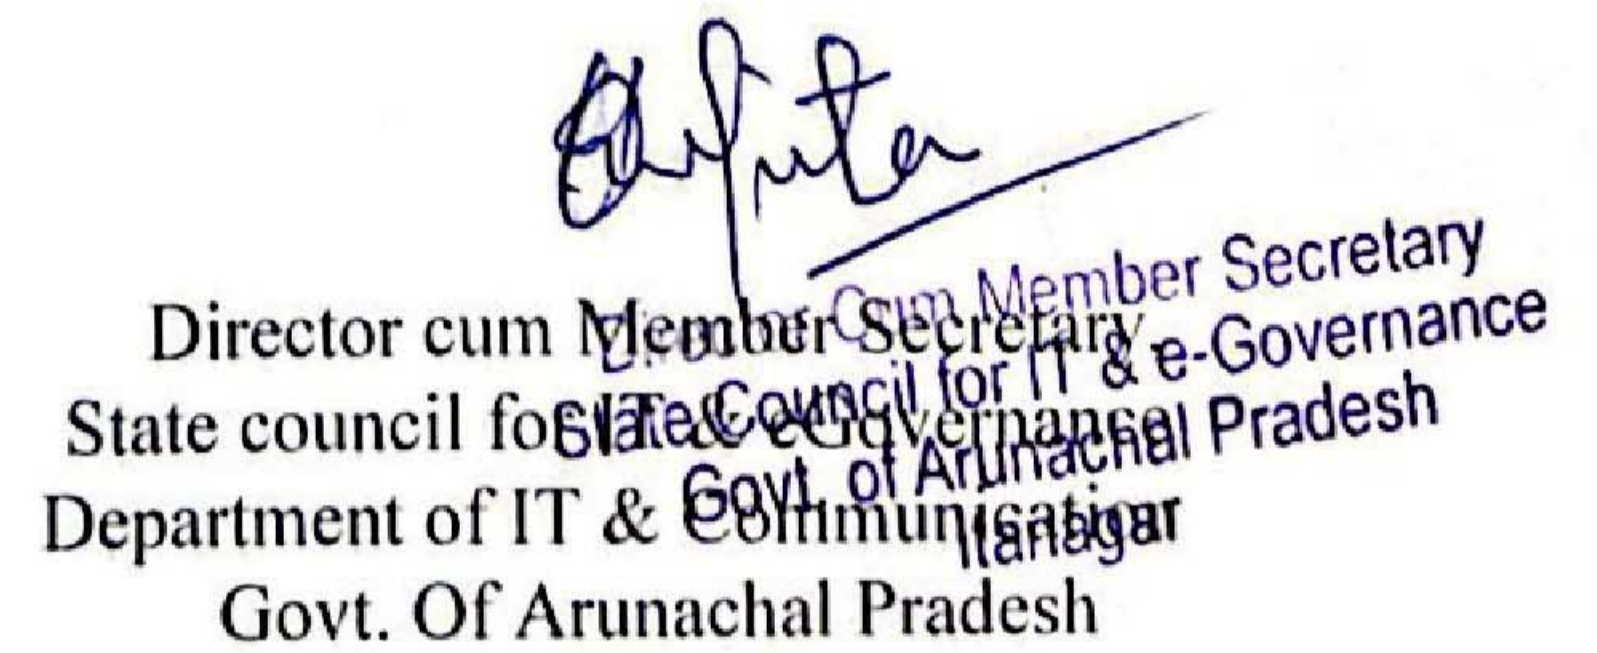 Director cum Member Secretary
State council for IT & eGovernance
Department of IT & Communication
Govt. Of Arunachal Pradesh
Director Cum Member Secretary
State Council for IT & e-Governance
Govt. of Arunachal Pradesh
Itanagar